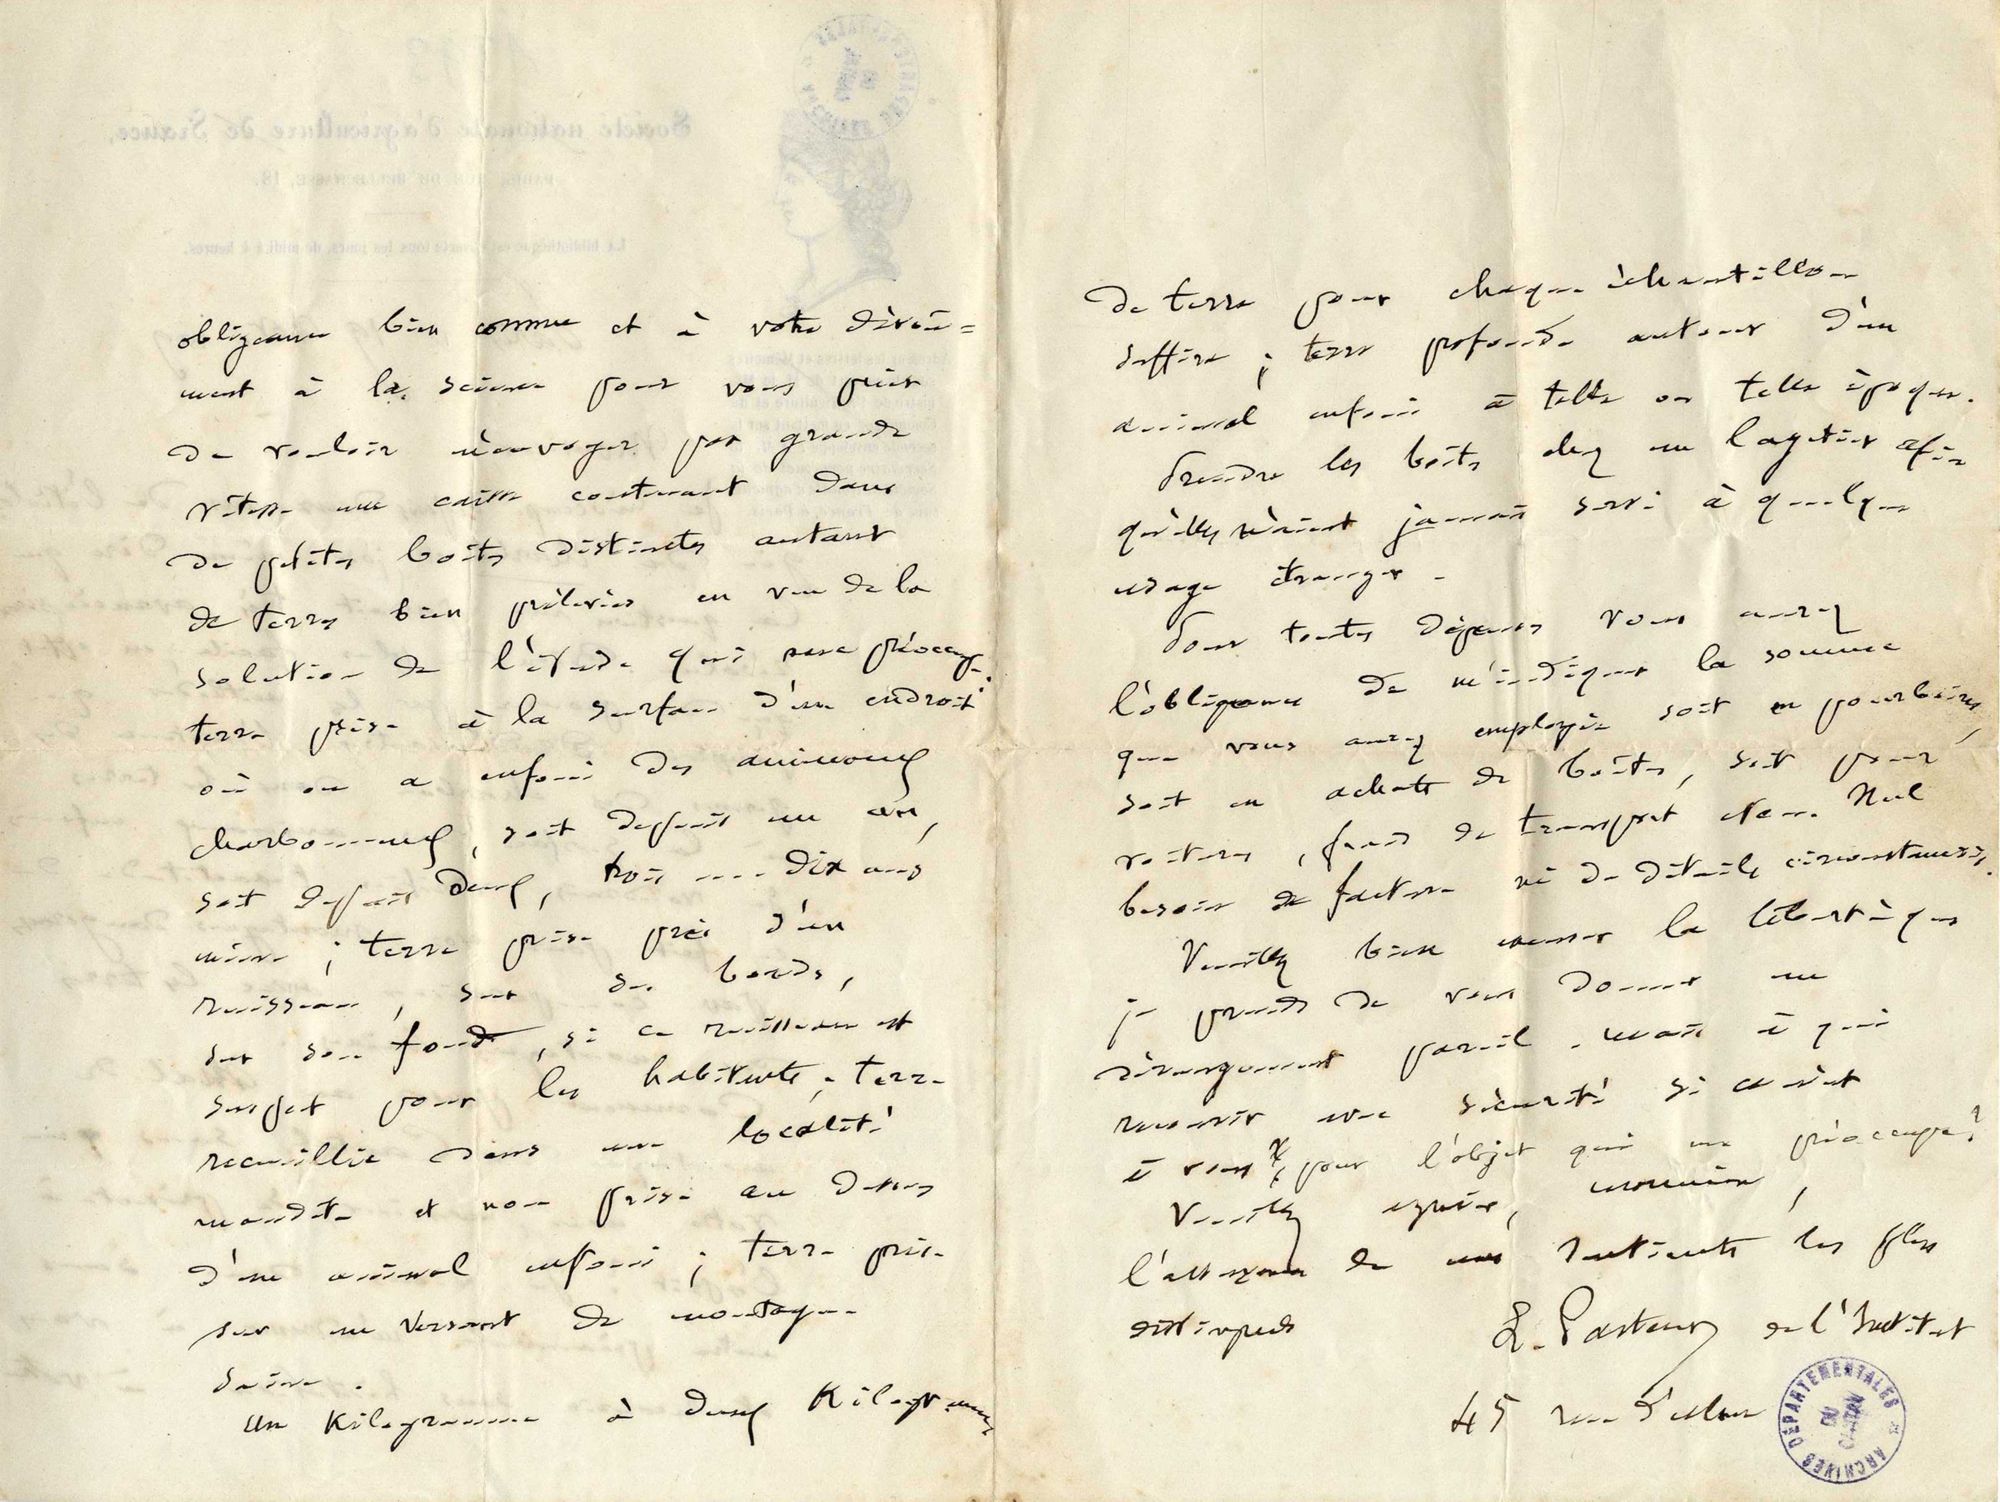 obligeance bien connue et à votre dévoue=
ment à la science pour vous prier
de vouloir m'envoyer par grande
vitesse une caisse contenant dans
de petites boîtes distinctes autant
de terres bien prélevées en vue de la
solution de l'étude qui me préoccupe.
terre prise à la surface d'un endroit
où on a enfoui des animaux
charbonneux, soit depuis un an,
soit depuis deux, trois .... dix ans
même ; terre prise près d'un
ruisseau, sur ses bords,
sur son fond, si ce ruisseau est
suspect pour les habitants ; terre
recueillie dans une localité
maudite et non prise au dessus
d'un animal enfoui ; terre prise
sur un versant de montagne
saine.
Un Kilogramme à deux Kilogrammes
de terre pour chaque échantillon
suffira ; terre profonde autour d'un
animal enfoui à telle ou telle époque.
Prendre les boîtes chez un layetier afin
qu'elles n'aient jamais servi à quelque
usage étranger.
Pour toutes dépenses vous aurez
l'obligeance de m'indiquer la somme
que vous aurez employée soit en pourboires,
soit en achats de boîtes, soit pour
voitures, frais de transport etc... Nul
besoin de facture ni de détails circonstanciés.
Veuillez bien excuser la liberté que
je prends de vous donner un
dérangement pareil. mais à qui
recourir avec sécurité si ce n'est
à vous, pour l'objet qui me préoccupe?
Veuillez agréer, monsieur,
l'assurance de mes sentiments les plus
distingués
L. Pasteur de l'Institut
45 rue d'Ulm
ARCHIVES DÉPARTEMENTALES
DU
CANTAL
Société nationale d'agriculture de France,
La bibliothèque est ouverte tous les jours, de midi à 4 heures.